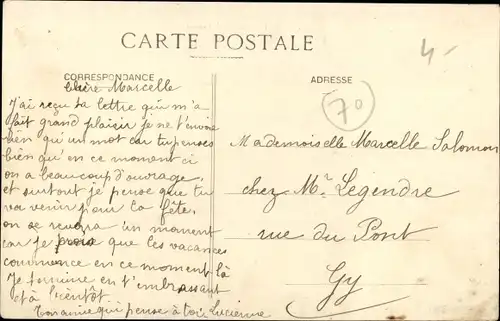 CARTE POSTALE
4-
CORRESPONDANCE
ADRESSE
70
Chère Marcelle
J'ai reçu ta lettre qui m'a
fait grand plaisir je ne t'envoie
rien qu'un mot car tu penses
bien qu'en ce moment ci
on a beaucoup d'ouvrage.
et surtout je pense que tu
va venir pour la fête.
on se revera un moment
car je crois que les vacances
commence en ce moment là
Je termine en t'embrassant
et à bientôt.
ton amie qui pense à toi Lucienne
Mademoiselle Marcelle Salomon
chez Mr Legendre
rue du Pont
Gy